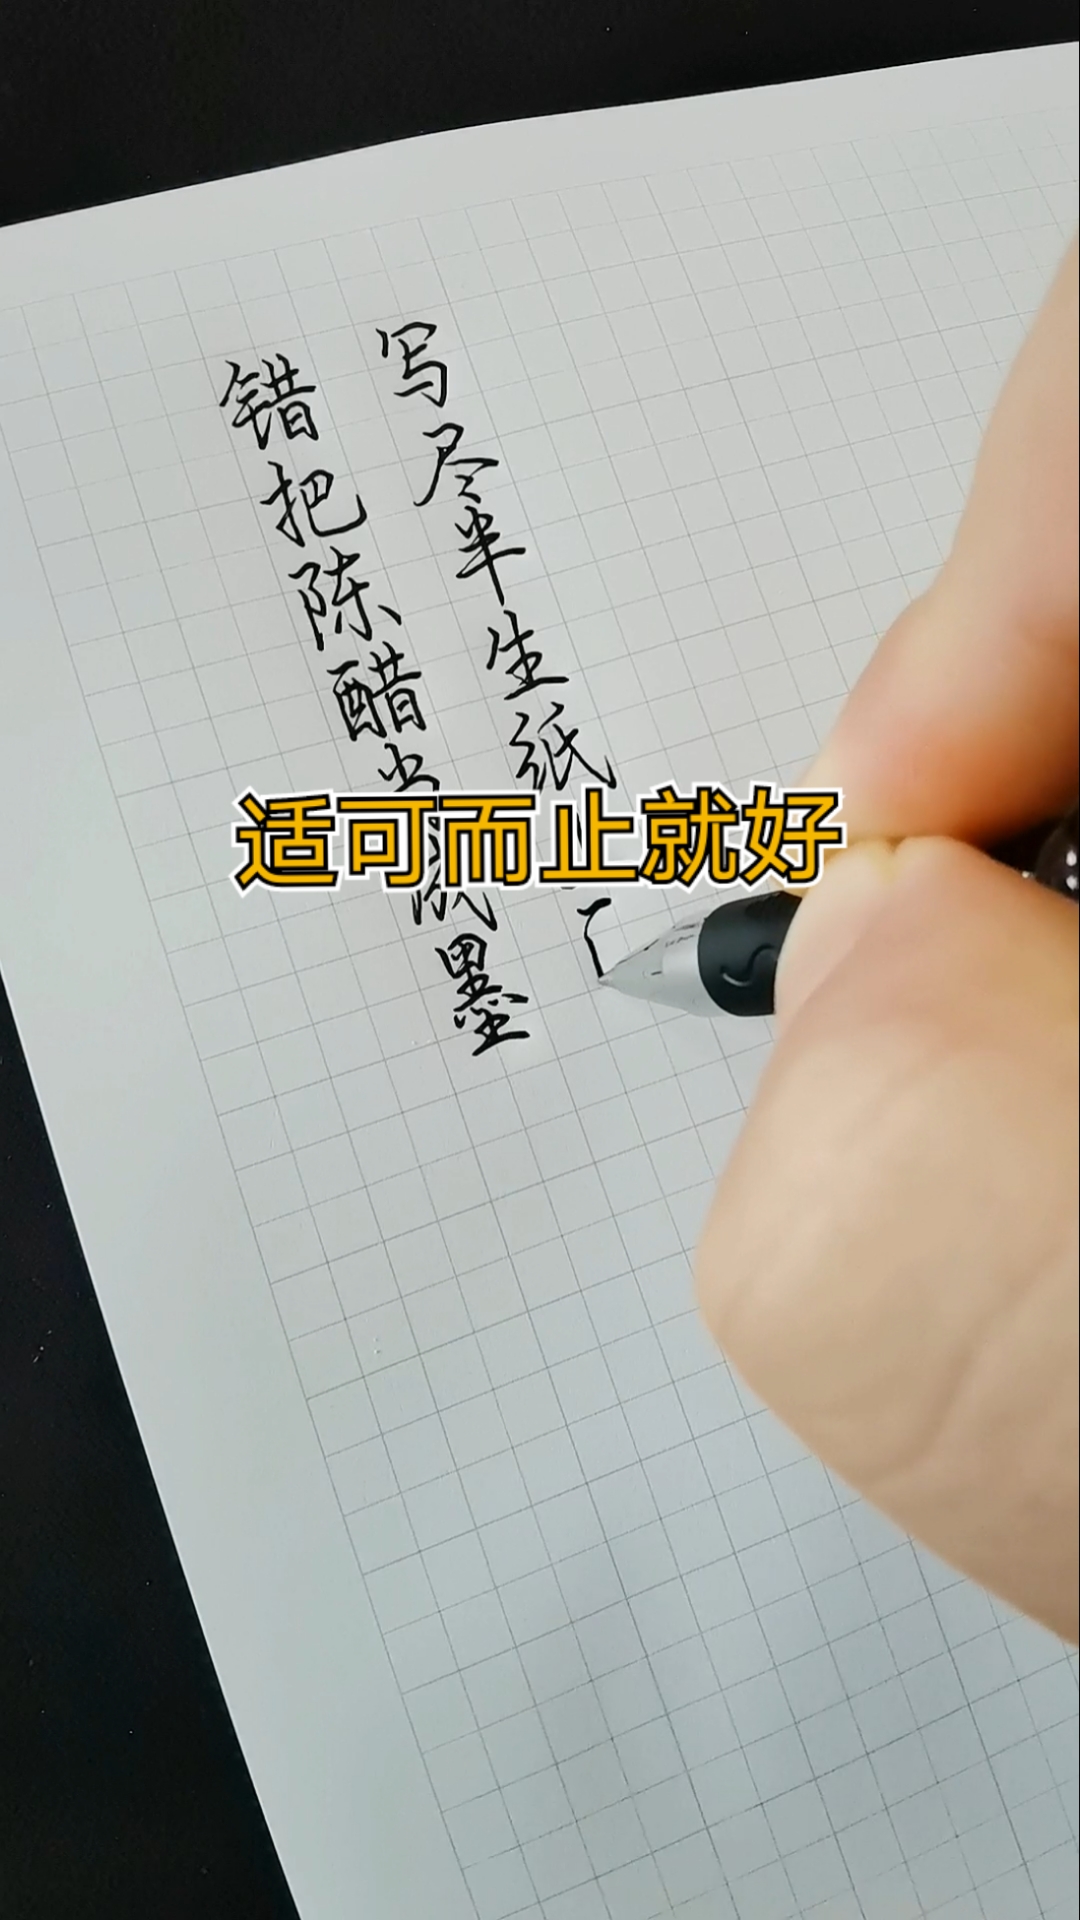 错把陈醋当成墨
写尽半生纸
适可而止就好